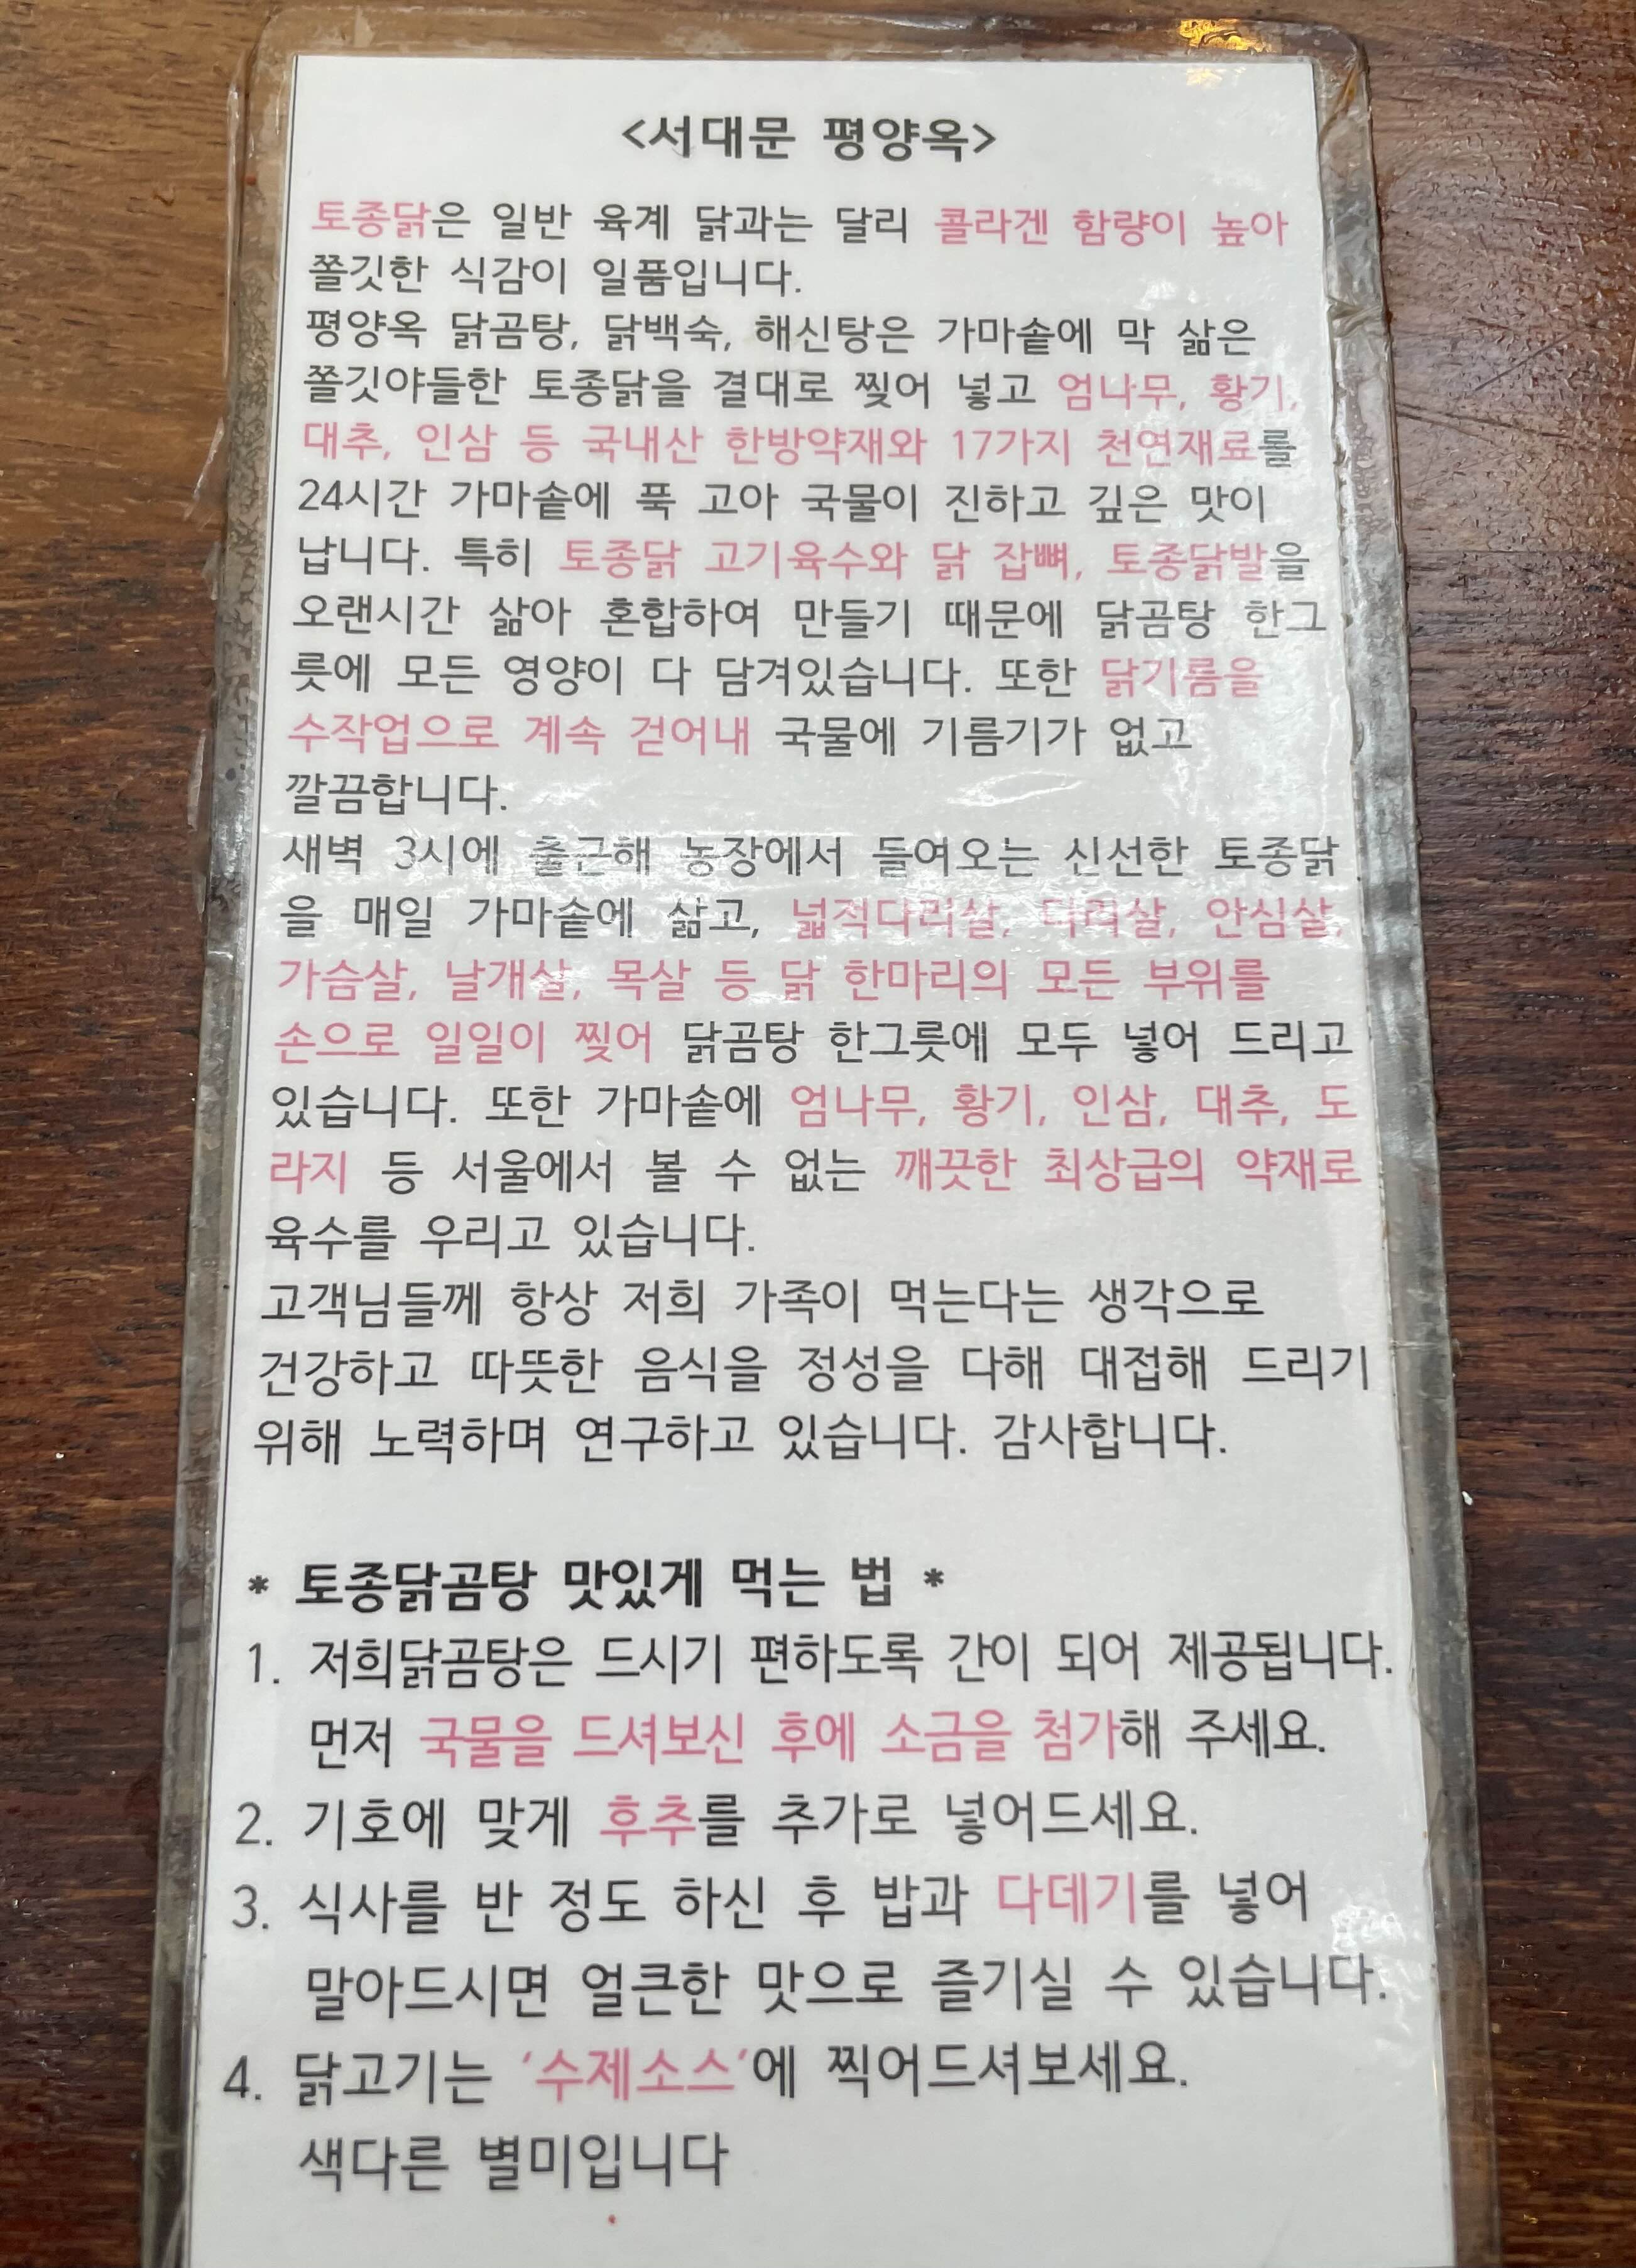 <서대문 평양옥>
토종닭은 일반 육계 닭과는 달리 콜라겐 함량이 높아
쫄깃한 식감이 일품입니다.
평양옥 닭곰탕, 닭백숙, 해신탕은 가마솥에 막 삶은
쫄깃야들한 토종닭을 결대로 찢어 넣고 엄나무, 황기,
대추, 인삼 등 국내산 한방약재와 17가지 천연재료를
24시간 가마솥에 푹 고아 국물이 진하고 깊은 맛이
납니다. 특히 토종닭 고기육수와 닭 잡뼈, 토종닭발을
오랜시간 삶아 혼합하여 만들기 때문에 닭곰탕 한그
릇에 모든 영양이 다 담겨있습니다. 또한 닭기름을
수작업으로 계속 걷어내 국물에 기름기가 없고
깔끔합니다.
새벽 3시에 출근해 농장에서 들여오는 신선한 토종닭
을 매일 가마솥에 삶고, 넓적다리살, 다리살, 안심살,
가슴살, 날개살, 목살 등 닭 한마리의 모든 부위를
손으로 일일이 찢어 닭곰탕 한그릇에 모두 넣어 드리고
있습니다. 또한 가마솥에 엄나무, 황기, 인삼, 대추, 도
라지 등 서울에서 볼 수 없는 깨끗한 최상급의 약재로
육수를 우리고 있습니다.
고객님들께 항상 저희 가족이 먹는다는 생각으로
건강하고 따뜻한 음식을 정성을 다해 대접해 드리기
위해 노력하며 연구하고 있습니다. 감사합니다.
* 토종닭곰탕 맛있게 먹는 법 *
1. 저희닭곰탕은 드시기 편하도록 간이 되어 제공됩니다.
먼저 국물을 드셔보신 후에 소금을 첨가해 주세요.
2. 기호에 맞게 후추를 추가로 넣어드세요.
3. 식사를 반 정도 하신 후 밥과 다데기를 넣어
말아드시면 얼큰한 맛으로 즐기실 수 있습니다.
4. 닭고기는 '수제소스'에 찍어드셔보세요.
색다른 별미입니다